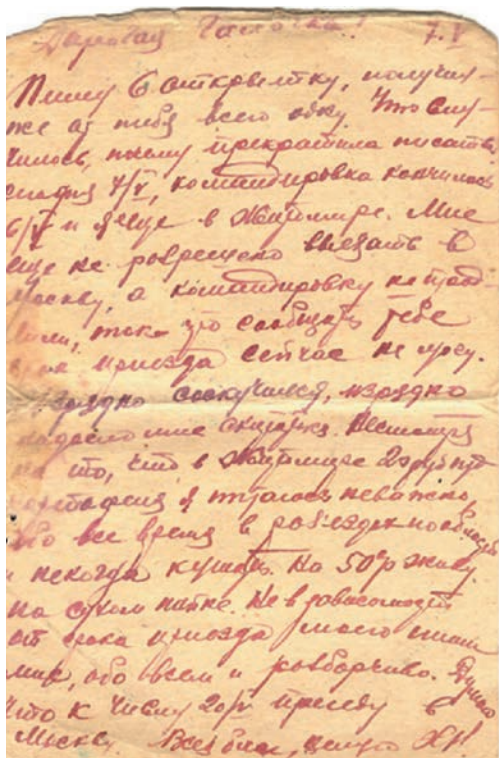 Дорогая Галочка! 7.V
Пишу 6 открытку, получил-
же от тебя всего одну. Что слу-
чилось, почему прекратила писать.
сегодня 7/V, командировка кончилась
6/V и я еще в Житомире. Мне
еще не разрешено выезжать в
Москву, а командировку не прод-
лили, так что сообщить тебе
срок приезда сейчас не могу.
Изрядно соскучился, изрядно
надоело мне Несмотря
на то, что в Житомире 20 руб пуд
картофеля я питаюсь неважно,
ибо все время в разъездах по области
и некогда кушать. На 50% живу
на сухом пайке. Не в зависимости
от срока приезда моего пиши
мне, обо всем и разборчиво. Думаю
что к числу 20/V приеду в
Москву. Всех благ, целую